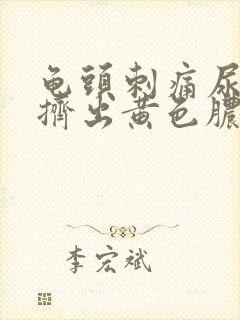 龟頭刺痛尿
擠出黃色膿
李宏斌